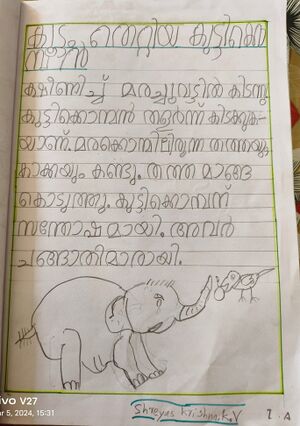 കൂട്ടം തെറ്റിയ കുട്ടിക്കൊ
മ്പൻ
ക്ഷീണിച്ച് മരച്ചുവട്ടിൽ കിടന്നു
കുട്ടിക്കൊമ്പൻ തളർന്ന് കിടക്കുക-
യാണ്. മരക്കൊമ്പിലിരുന്ന തത്തയും
കാക്കയും കണ്ടു. തത്ത മാങ്ങ
കൊടുത്തു. കുട്ടിക്കൊമ്പന്
സന്തോഷമായി. അവർ
ചങ്ങാതിമാരായി.
Shreyas Krishna.K.V
2.A
vivo V27
5, 2024, 15:31